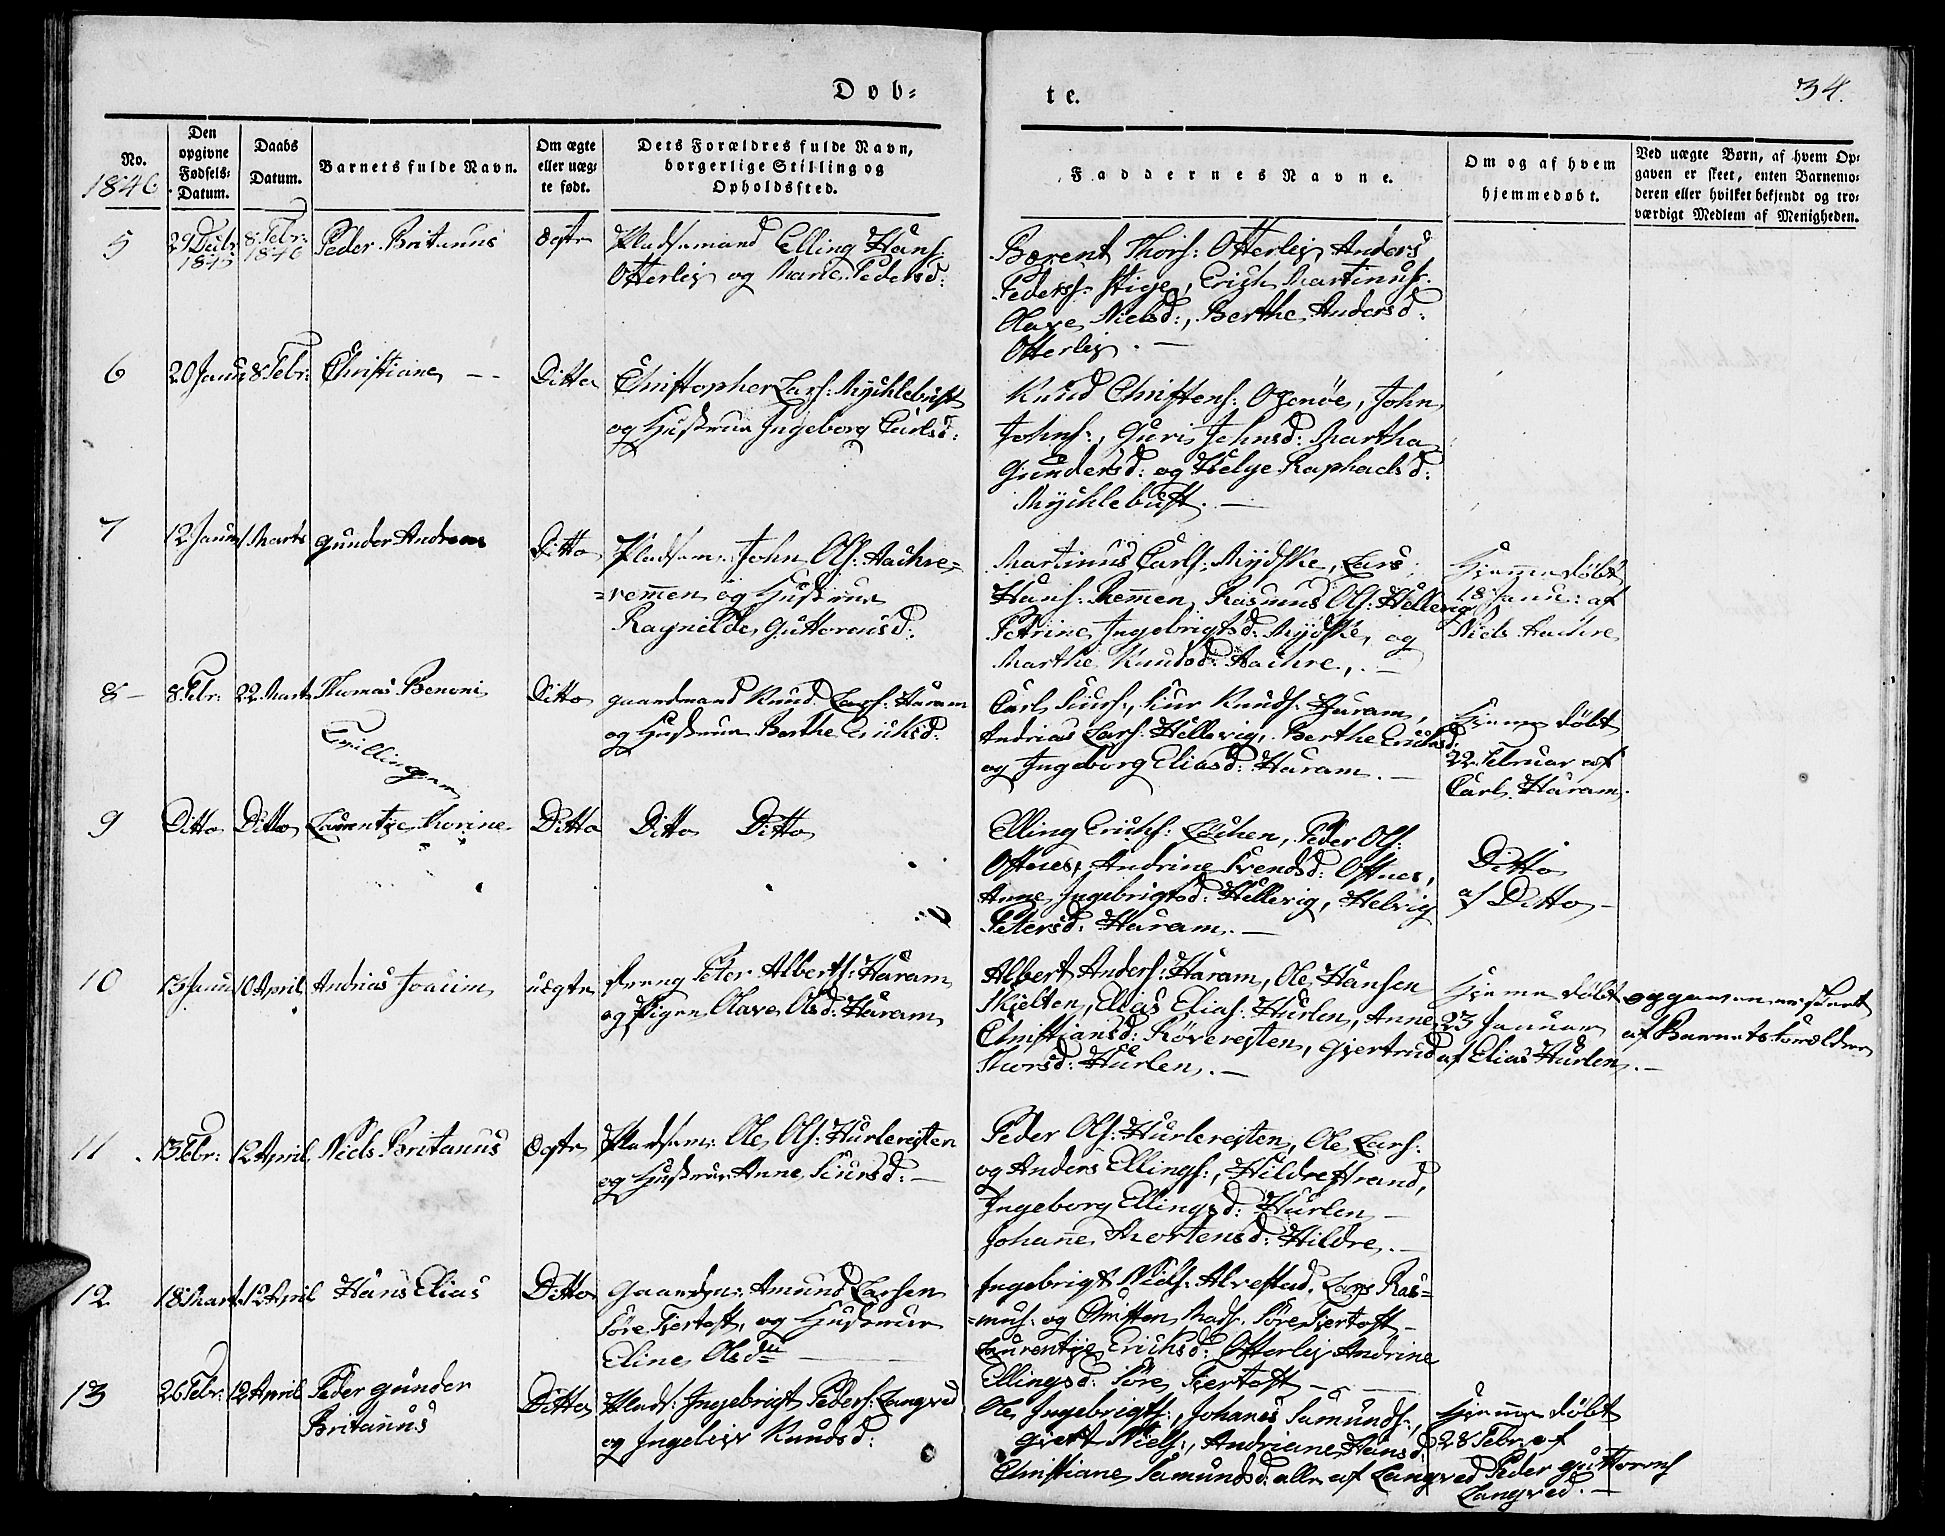 Døb-
te.
34.
No.
1846
Den opgivne Fødsels-Datum.
Daabs Datum.
Barnets fulde Navn.
Om ægte eller uæg-te født.
Dets Forældres fulde Navn, borgerlige Stilling og Opholdssted.
Faddernes Navne.
Om og af hvem hjemmedøbt.
Ved uægte Børn, af hvem Op-gaven er skeet, enten Barnemo-deren eller hvilket bekjendt og tro-værdigt Medlem af Menigheden.
5
29 Decbr 1845
8 Febr: 1846
Peder Britanus
Ægte
Pladsemand Elling Hans:
Otterlei og Marie Pedersd:
Berent Thors: Otterlei, Anders
Peders: Stige, Erich Martinus:
Olave Nielsd:, Berthe Andersd:
Otterlei. —
6
20 Janu
8 Febr:
Christiane — -
Ditto
Christopher Lars: Mychlebust
og Hustrue Ingeborg Carlsd:
Knud Christens: Ogenøe, John
Johns:, Guri Johnsd: Martha
Gundersd: og Helge Raphaelsd:
Mychlebust. —
7
12 Janu
1 Marts
Gunder Andreas
Ditto
Pladsem: John Ols: Aachre=
=remmen og Hustrue
Ragnilde Guttormsd:
Martinus Carls: Mydske, Lars
Hans: Remmen, Rasmus Ols: Hellevig
Petrine Ingebrigtsd: Mydske og
Marthe Knudsd: Aachre. —
Hjemmedøbt
18 Janu: af
Niels Aachre
8 -
8 Febr:
22 Marts
Thomas Benoni
Tvillinger
Ditto
Gaardmand Knud Lars: Haram
og Hustrue Berthe Erichsd:
Carl Siurs:, Siur Knuds: Haram,
Andreas Lars: Hellevig, Berthe Erichsd:
og Ingeborg Eliasd: Haram. —
Hjemmedøbt
22 Februar af
Carl Haram.
9
Ditto
Ditto
Laurentze Korine
Ditto
Ditto Ditto
Elling Erichs: Løchen, Peder Ols:
Oftnes, Andrine Svendsd: Oftnes,
Anne Ingebrigtsd: Hellevig, Helvig
Petersd: Haram. —
Ditto
af Ditto -
10
13 Janu
10 April
Andreas Joacim
uægte
Dreng Peter Alberts: Haram
og Pigen Olave Olsd: Haram
Albert Anders: Haram, Ole Hansen
Skjelten, Elias Elias: Hurlen, Anne
Christiansd: Røverejten, Gjertrud
Thorsd: Hurlen. —
Hjemmedøbt
23 Januar
af Elias Hurlen
opgaven er skeet
af Barnets Forældre
. —
11
13 Febr:
12 April
Niels Britanus
Ægte
Pladsem: Ole Ols: Hurlerejten
og Hustrue Anne Siursd: —
Peder Ols: Hurlerejten, Ole Lars:
og Anders Ellings:, Hildrestrand,
Ingeborg Ellingsd: Hurlen —
Johanne Mortensd: Hildre. —
12
18 Mart
12 April
Hans Elias
Ditto
Gaardm: Amund Larsen
Søre Fjertoft, og Hustrue
Eline Olsd: —
Ingebrigt Niels: Alvestad, Lars Ras=
=mus: og Christen Mads: Søre Fjertoft —
Laurentze Erichsd: Otterlei Andrine
Ellingsd: Søre Fjertoft —
13
26 Febr:
12 April
Peder Gunder
Britanus
Ditto
Plads: Ingebrigt Peders: Langved
og Ingeleiv Knudsd:
Ole Ingebrigts:, Johanes Samunds:,
Gjert Niels:, Andriane Hansd:
Christiane Samundsd: alle af Langved
Hjemmedøbt
28 Febr: af
Peder Guttorms
Langved. —